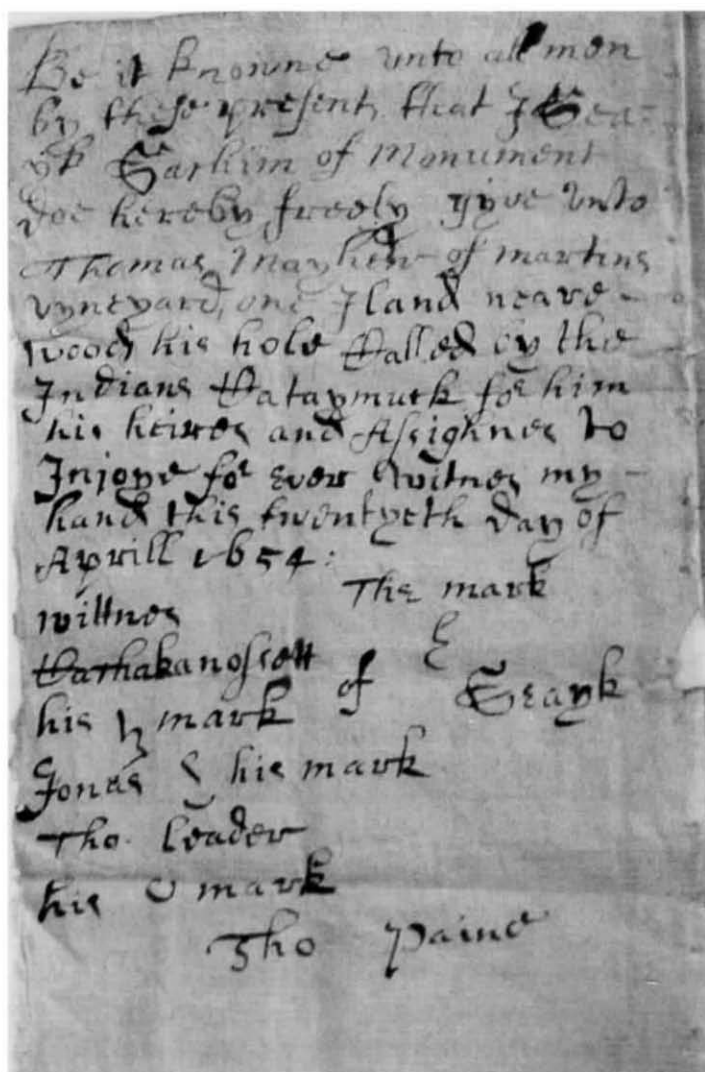 Be it knowne unto all men
by these present, that I Sea=
yk Sachim of Monument
doe hereby freely gyve unto
Thomas Mayhew of martins
vyneyard, one Iland neare
woods his hole Called by the
Indians Cataymuck for him
his heires and Assighnes to
Injoye for Ever Witnes my
hand this twentyeth day of
Aprill 1654:
The mark
wittnes
his mark of Seayk
Jonas his mark
Tho. Leader
his mark
Tho Paine